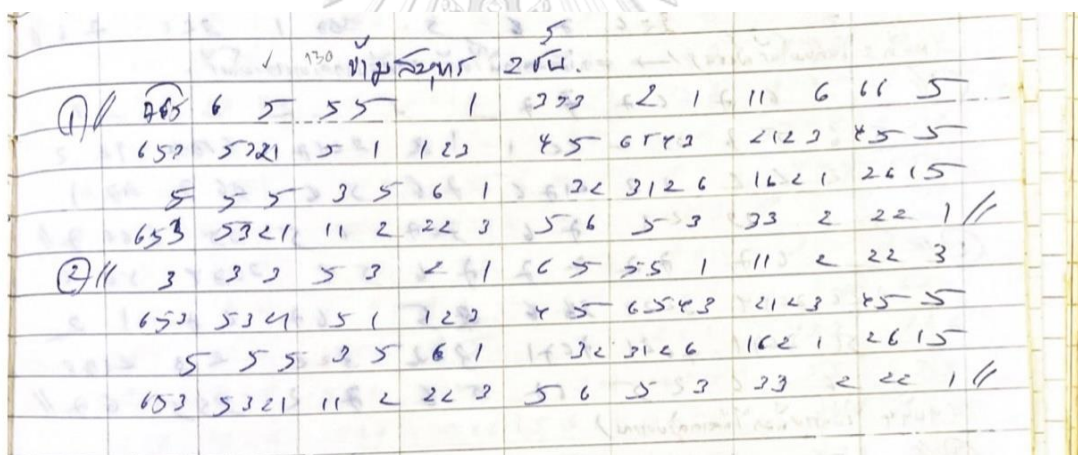 ✓ 130 ข้ามสมุทร 2 ชั้น.
① // 765 6 5 55 1 333 2 1 11 6 66 5
653 5321 5 1 123 45 6543 2123 45 5
5 5 5 3 5 6 1 32 3126 1621 2615
653 5321 11 2 22 3 56 5 3 33 2 22 1 //
② // 3 33 5 3 2 1 6 5 55 1 11 2 22 3
653 5321 51 123 45 6543 2123 45 5
5 55 3 5 6 1 32 3126 1621 2615
653 5321 11 2 22 3 5 6 5 3 33 2 22 1 //